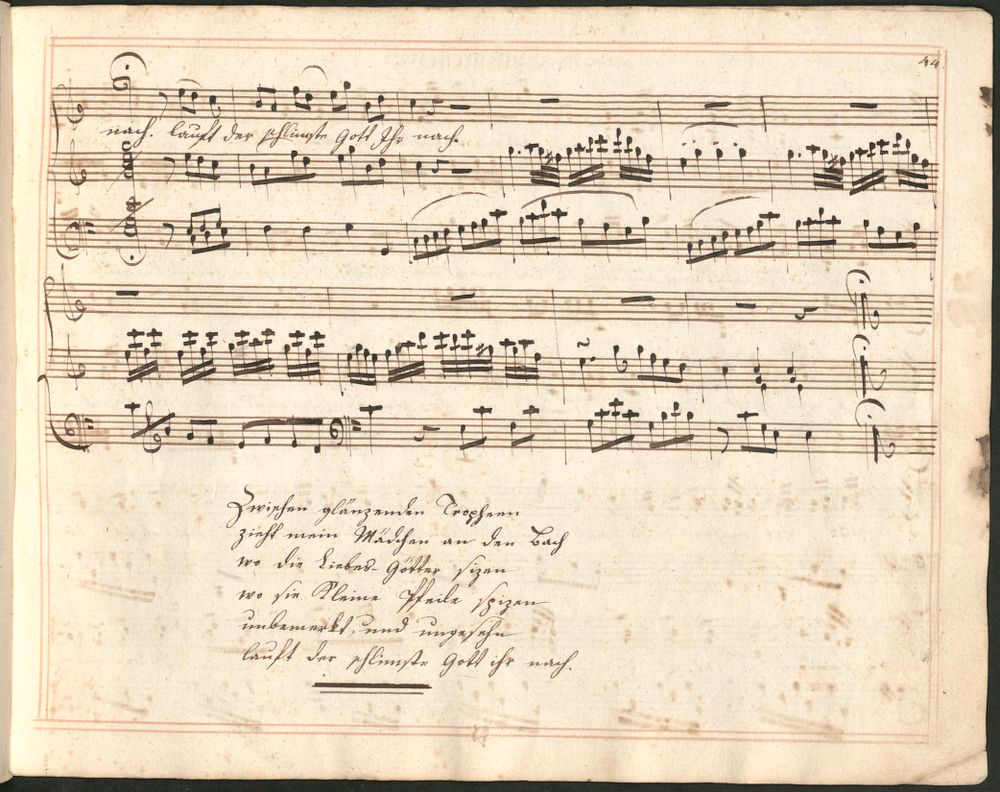 44.
nach. lauft der schlimste Gott Ihr nach.
Zwischen glänzenden Tropheen
zieht mein Mädchen an den Bach
wo die Liebes-Götter sizen
wo sie Kleine Pfeile spizen
unbemerkt, und ungesehn
lauft der schlimste Gott ihr nach.